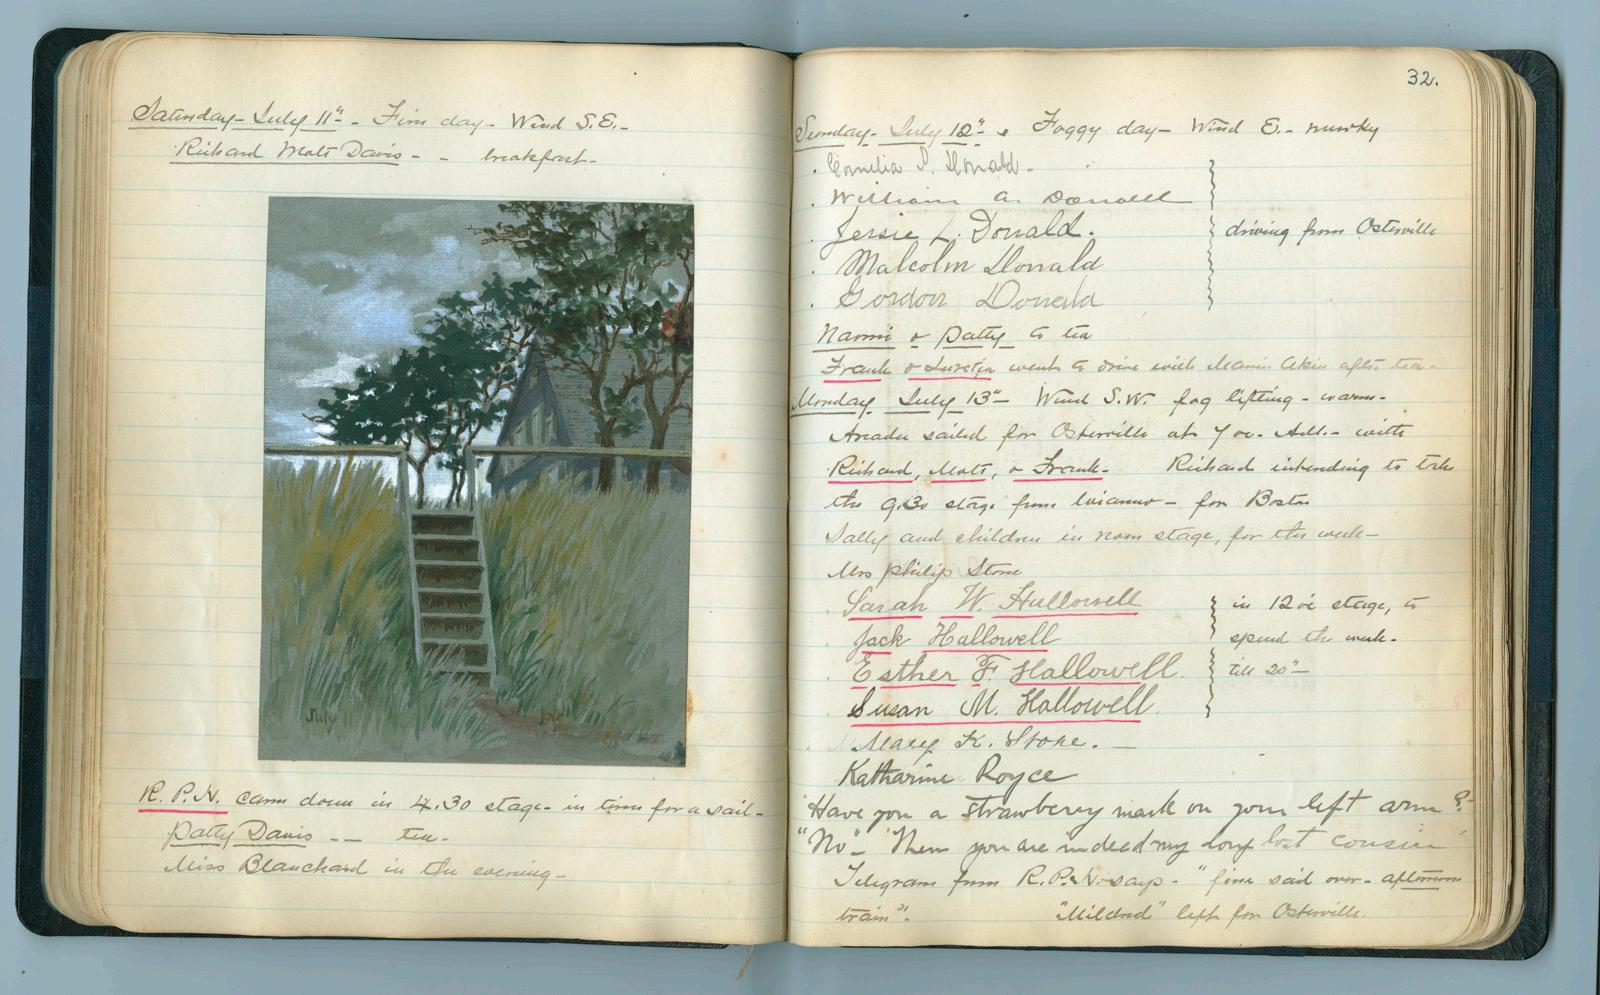 Saturday - July 11th - Fine day - Wind S.E. -
Richard Matt Davis - - breakfast -
July 11
R.P.H. came down in 4.30 stage - in time for a sail -
Patty Davis - - tea -
Miss Blanchard in the evening -
32.
Sunday - July 12th Foggy day - Wind E. - murky
Cornelia S. Donald.
William A. Donald
Jessie L. Donald.
driving from Osterville
Malcolm Donald
Gordon Donald
Naomi & Patty to tea
Frank & Lucretia went to drive with after tea -
Monday July 13th - Wind S.W. fog lifting - warm -
sailed for Osterville at 7 with
Richard, Matt, & Frank - Richard intending to take
the 9.30 stage from Wianno - for Boston
Sally and children in noon stage, for the week -
Mrs Philip Stone
Sarah W. Hallowell
in 12 stage, to
Jack Hallowell
spend the week -
Esther F. Hallowell.
till 20th -
Susan M. Hallowell
Mary K. Stone. -
Katharine Royce
"Have you a strawberry mark on your left arm?"
"No" - "Then you are indeed my long lost cousin"
Telegram from R.P.H. says - "fine sail over - afternoon
train". "Mildred" left for Osterville.